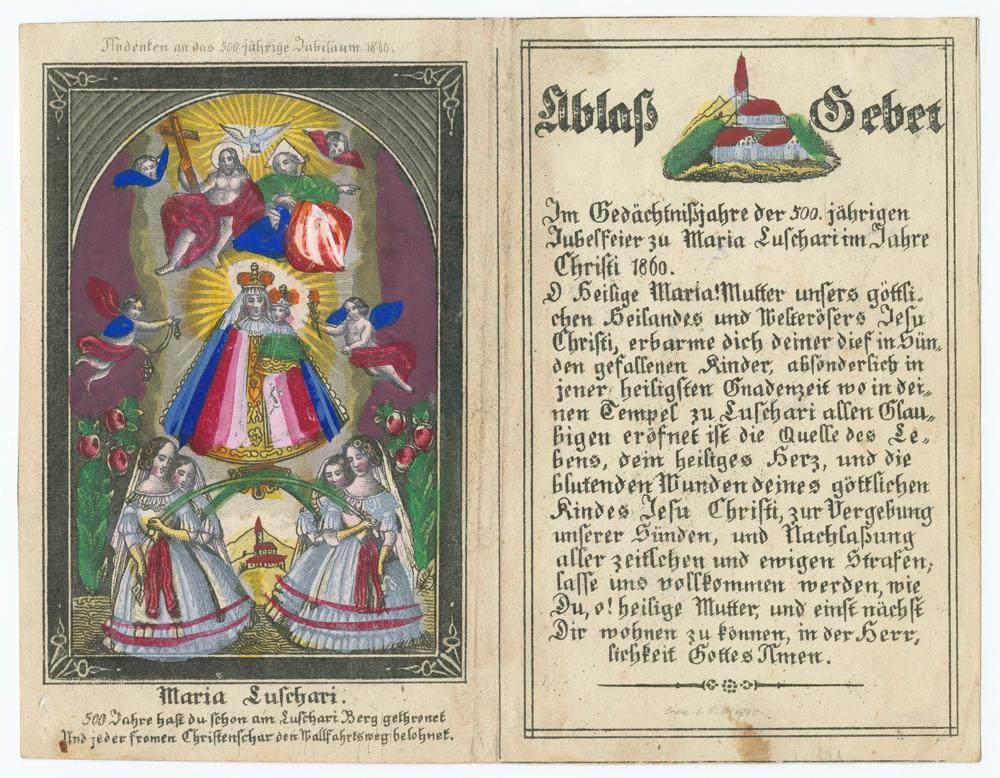 Andenken an das 500-jährige Jubiläum 1860.
Maria Luschari.
500 Jahre hast du schon am Luschari Berg gethronet
Und jeder fromen Christenschar den Wallfahrtsweg belohnet.
Ablaß Gebet
Im Gedächtnißjahre der 500. jährigen
Jubelfeier zu Maria Luschari im Jahre
Christi 1860.
O Heilige Maria! Mutter unsers göttli-
chen Heilandes und Welterösers Jesu
Christi, erbarme dich deiner dief in Sün-
den gefallenen Kinder, absönderlich in
jener heiligsten Gnadenzeit wo in dei-
nen Tempel zu Luschari allen Glau-
bigen eröfnet ist die Quelle des Le-
bens, dein heiliges Herz, und die
blutenden Wunden deines göttlichen
Kindes Jesu Christi, zur Vergebung
unserer Sünden, und Nachlaßung
aller zeitlchen und ewigen Strafen,
lasse uns vollkommen werden, wie
Du, o! heilige Mutter, und einst nächst
Dir wohnen zu können, in der Herr,
lichkeit Gottes Amen.